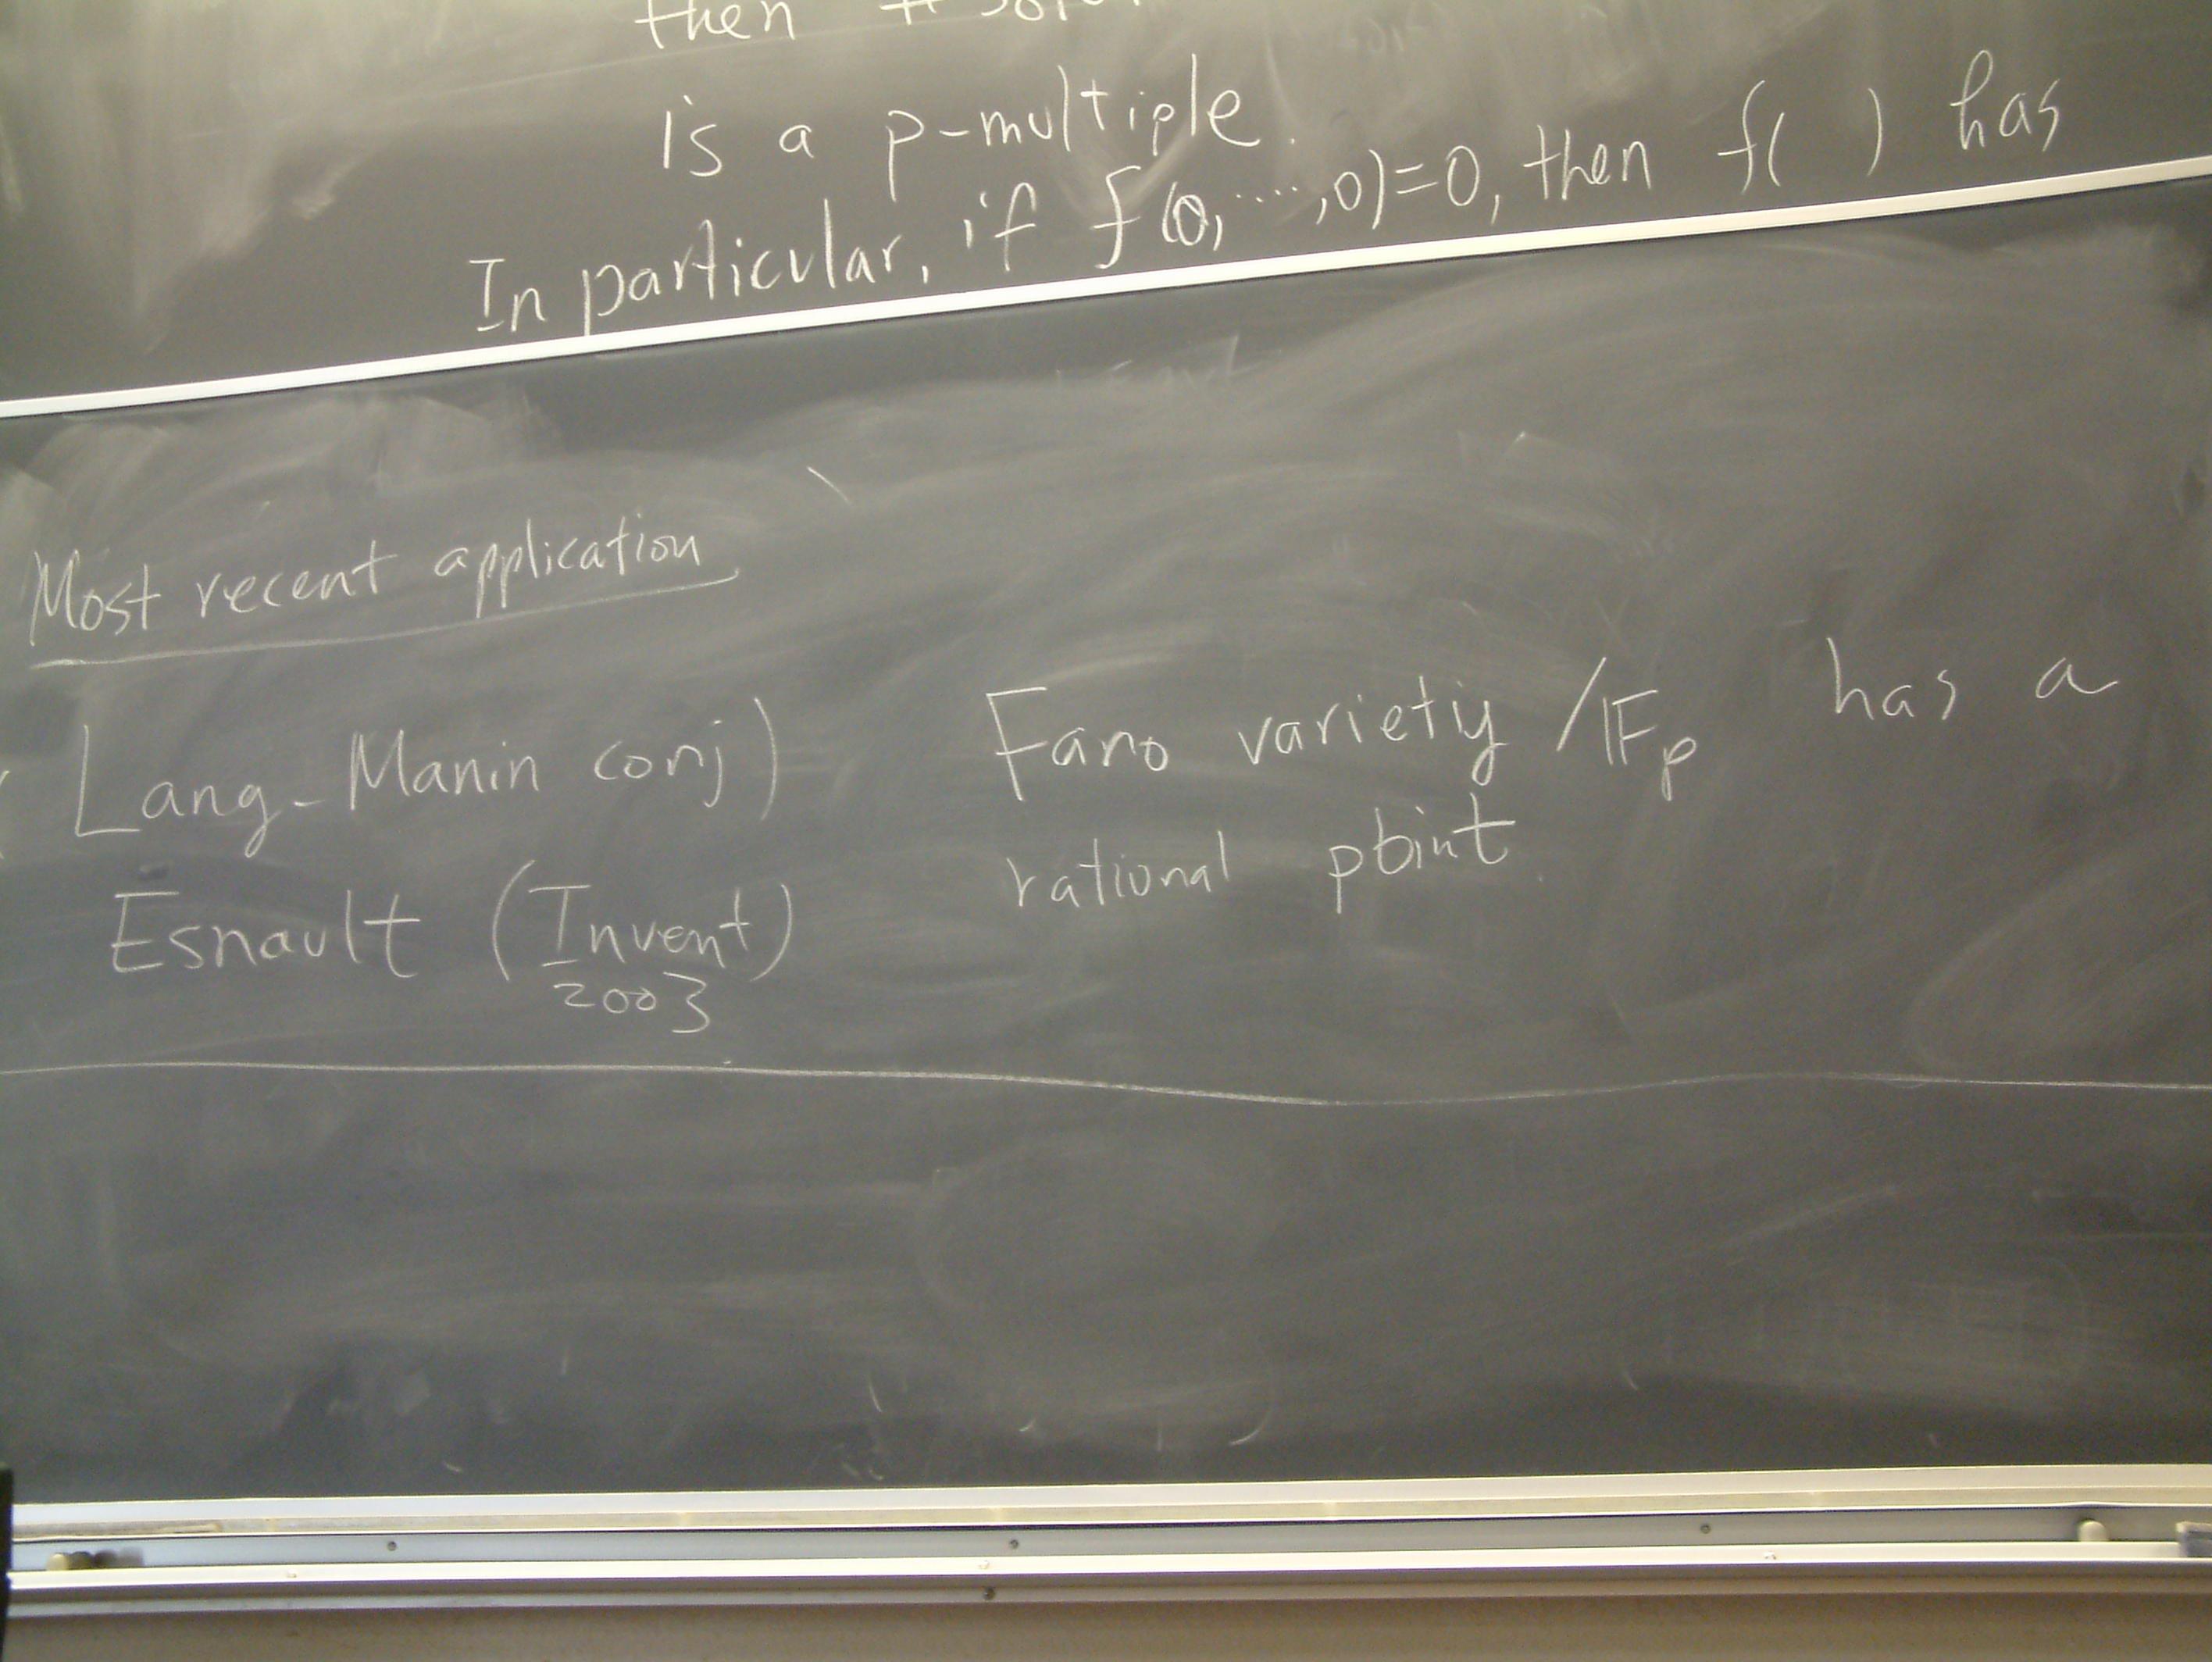 then #
is a p-multiple.
In particular, if f(0,⋯,0)=0, then f( ) has
Most recent application
(Lang-Manin conj) Fano variety /𝔽p has a
rational point.
Esnault (Invent)
2003